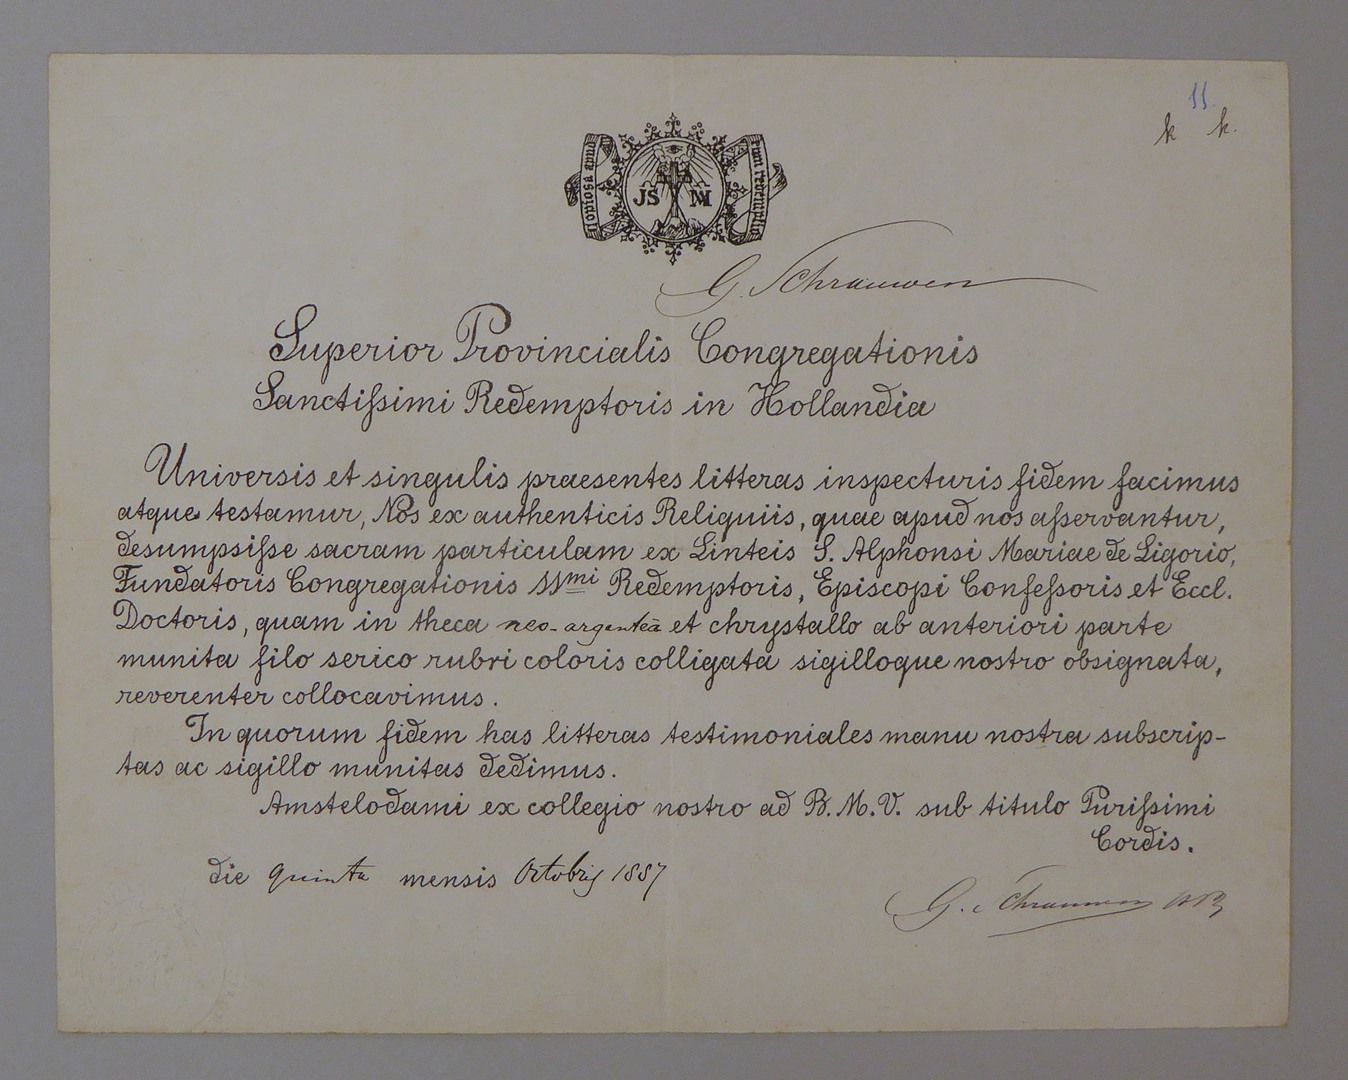 11.
k k.
Copiosa apud eum redemptio
JS M
G. Schrauwen
Superior Provincialis Congregationis
Sanctißimi Redemptoris in Hollandia
Universis et singulis praesentes litteras inspecturis fidem facimus
atque testamur, Nos ex authenticis Reliquiis, quae apud nos aßervantur,
desumpsiße sacram particulam ex Linteis S. Alphonsi Mariae de Ligorio,
Fundatoris Congregationis SSmi Redemptoris, Episcopi Confeßoris et Eccl.
Doctoris, quam in theca neo-argenteâ et chrystallo ab anteriori parte
munita filo serico rubri coloris colligata sigilloque nostro obsignata,
reverenter collocavimus.
In quorum fidem has litteras testimoniales manu nostra subscrip-
tas ac sigillo munitas dedimus.
Amstelodami ex collegio nostro ad B. M. V. sub titulo Purißimi
Cordis.
die quinta mensis Octobris 1887
G. Schrauwen